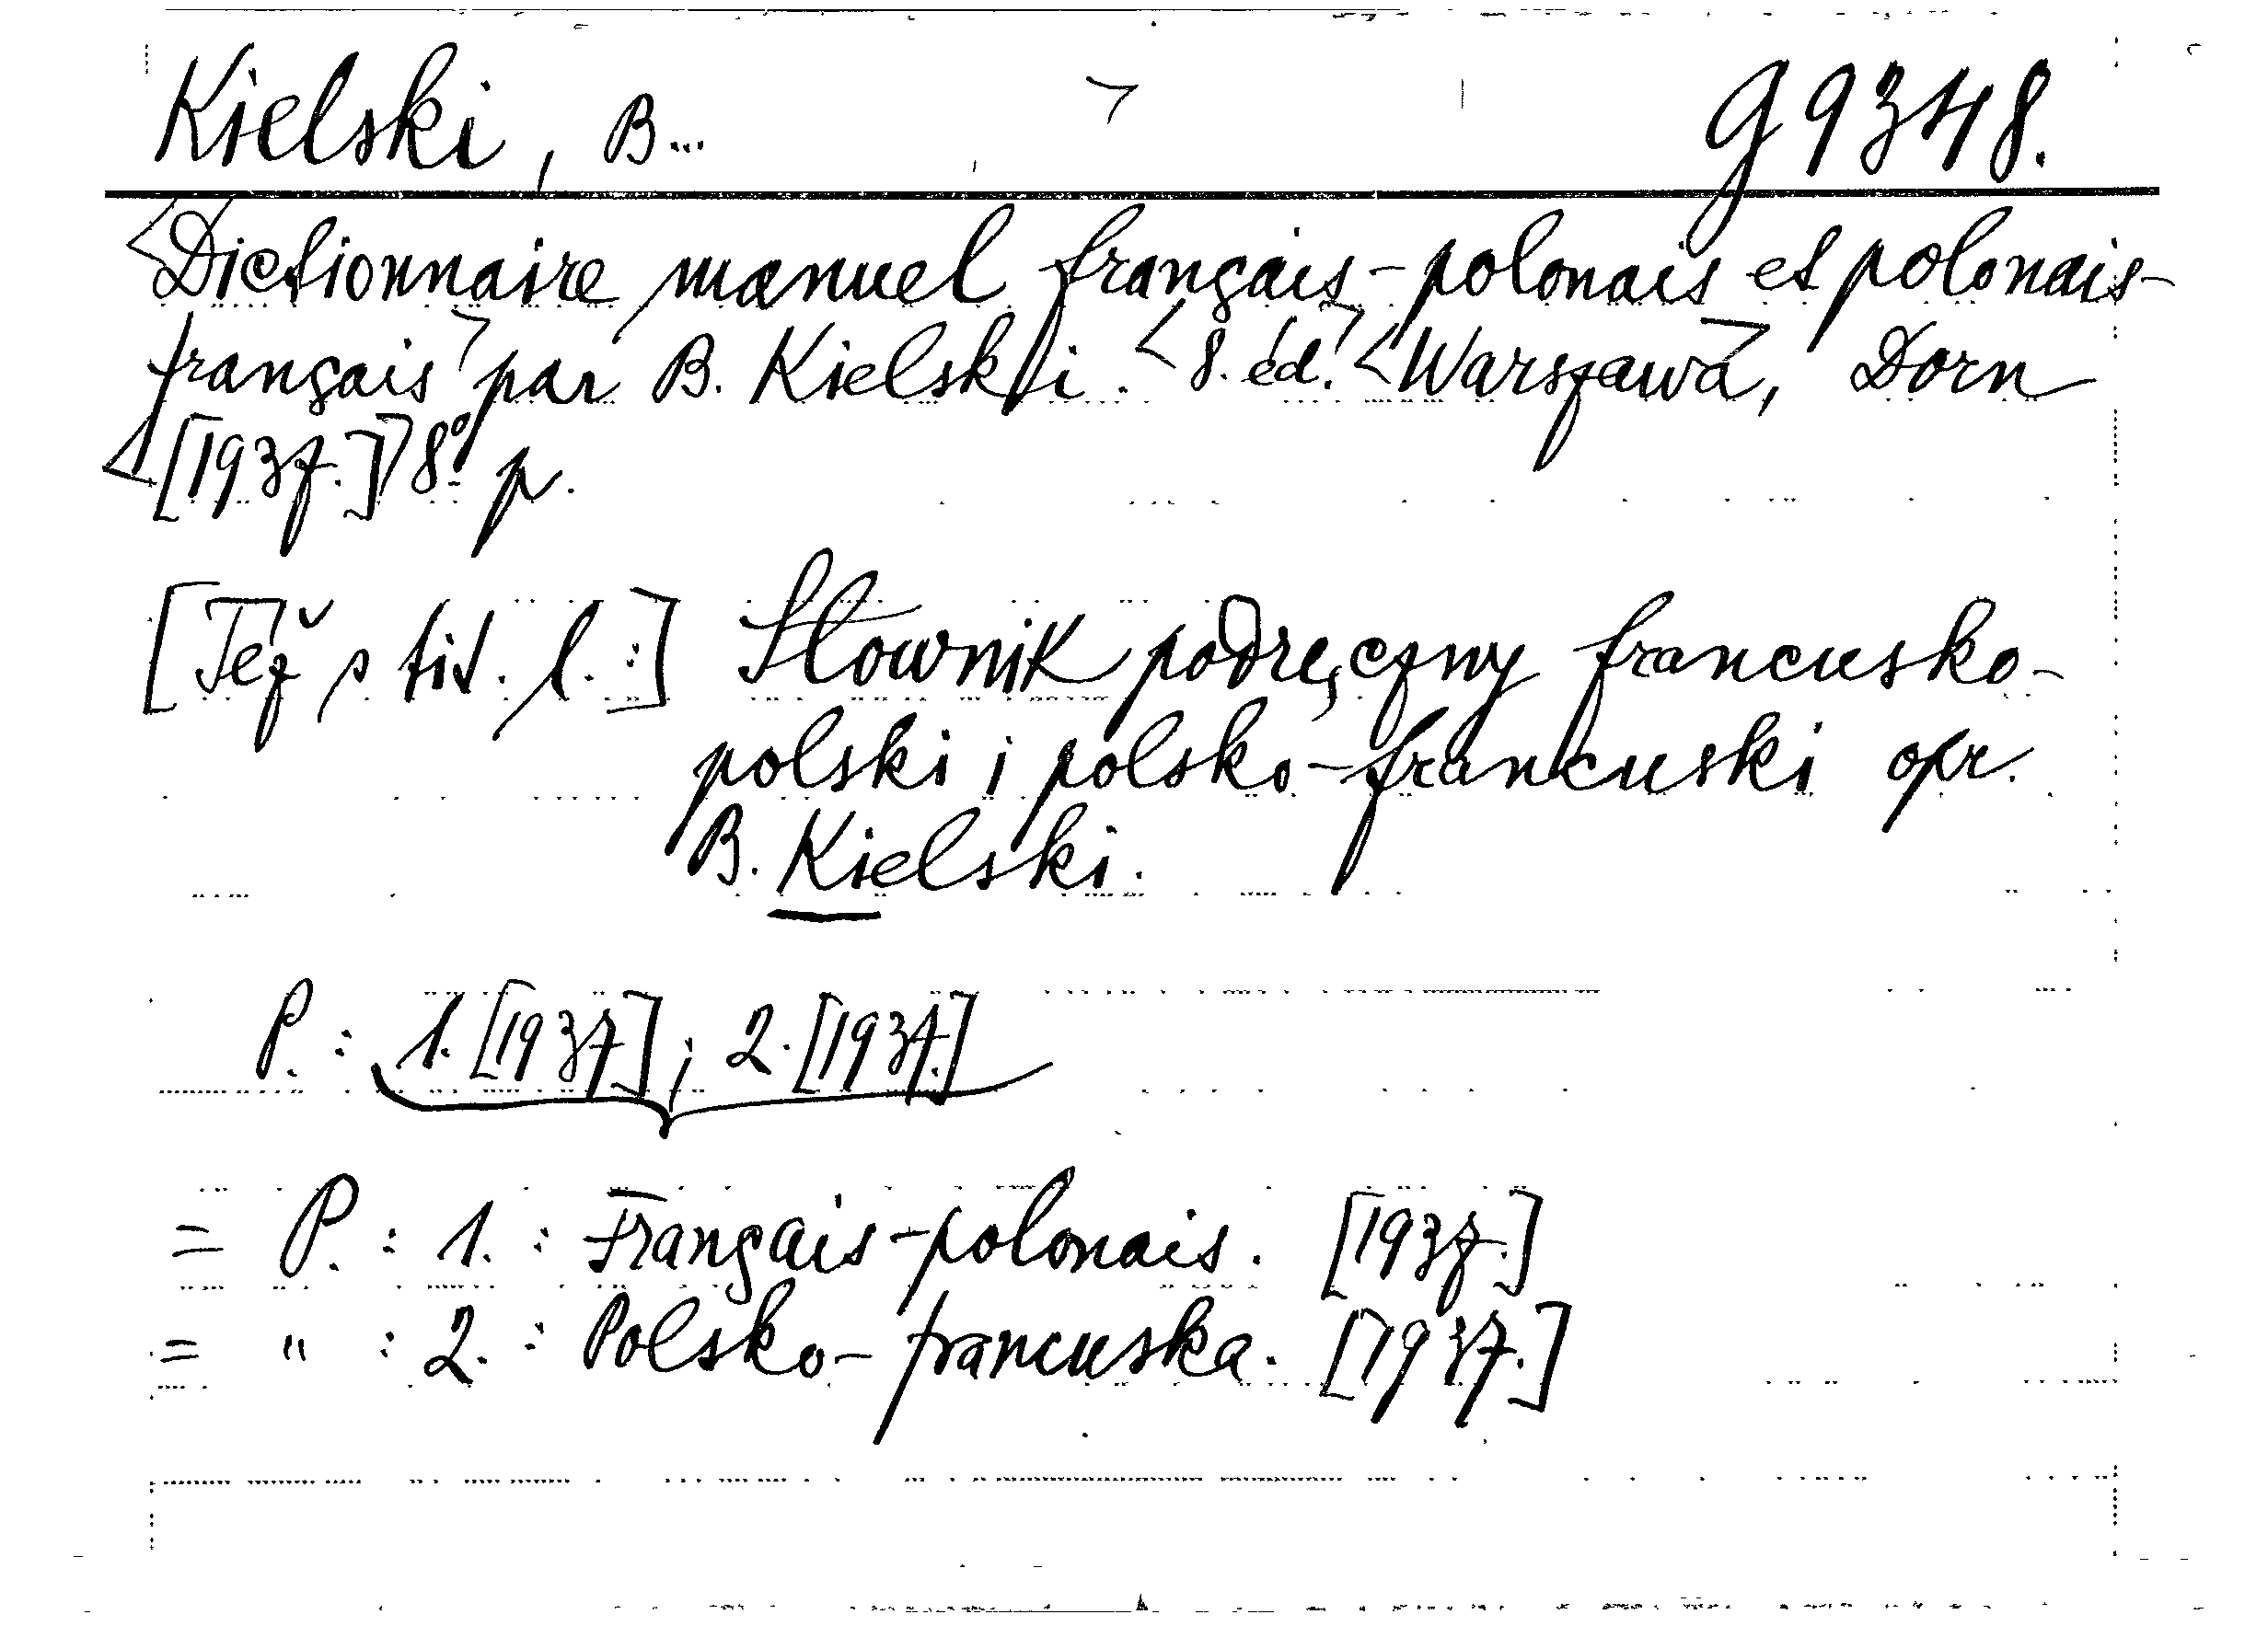 Kielski, B... g 9348.
<Dictionnaire manuel français-polonais et polonais-
français> par B. Kielski. <8. éd.> <Warszawa>, Dorn
<[1937.]> 8° p.
[Též s tit. l.:] Słownik podręczny francusko-
polski i polsko-francuski opr.
B. Kielski.
P.: 1. [1937]; 2. [1937.]
= P.: 1.: Français-polonais. [1937.]
= " : 2.: Polsko-francuska. [1937.]